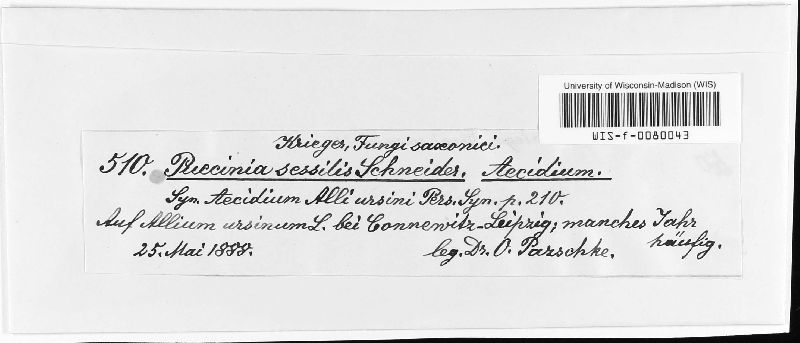 University of Wisconsin-Madison (WIS)
WIS-f-0080043
Krieger, Fungi saxonici.
510. Puccinia sessilis Schneider. Aecidium.
Syn. Aecidium Alli ursini Pers. Syn. p. 210.
Auf Allium ursinum L. bei Connewitz-Leipzig; manches Jahr
häufig.
25. Mai 1888. leg. Dr. O. Pazschke.